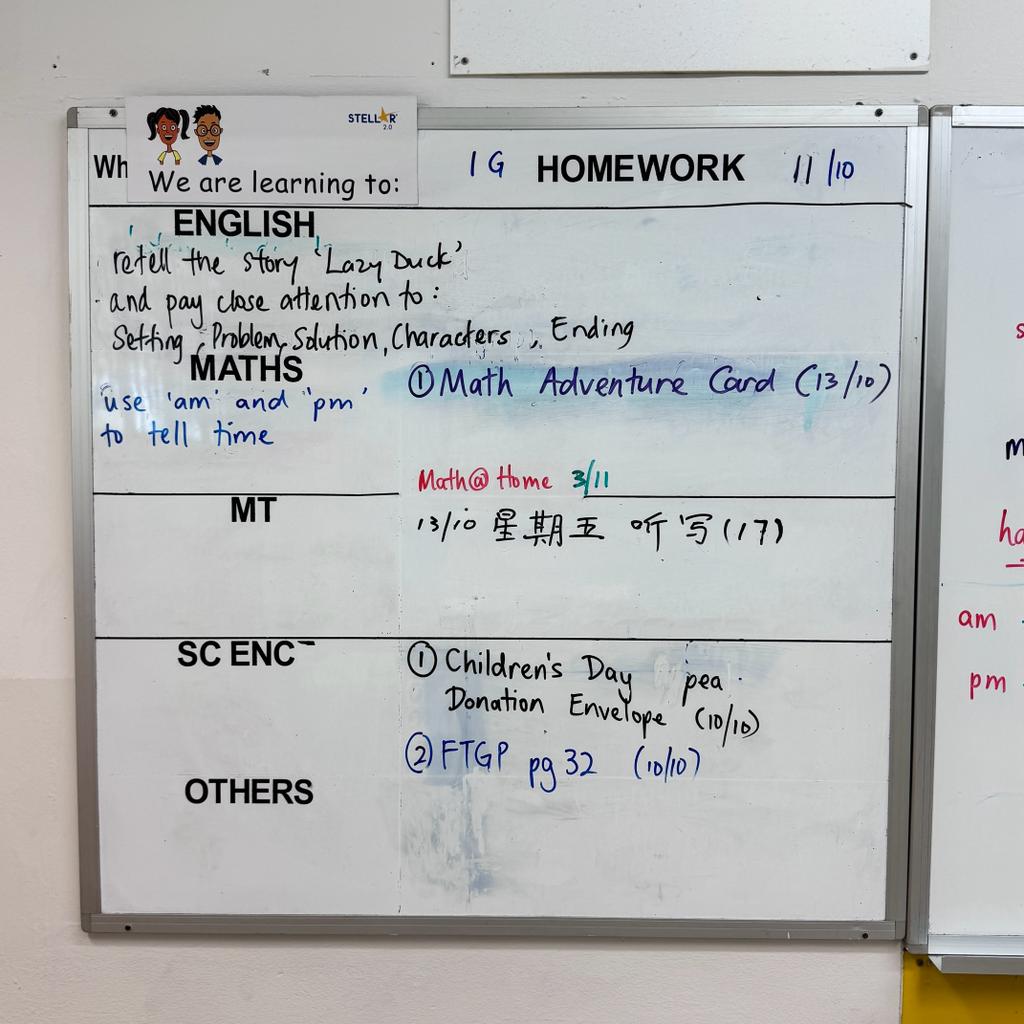 STELLAR
2.0
We are learning to:
Wh
1G HOMEWORK 11/10
ENGLISH
retell the story 'Lazy Duck'
and pay close attention to:
Setting, Problem, Solution, Characters, Ending
MATHS
use 'am' and 'pm'
to tell time
① Math Adventure Card (13/10)
Math@Home 3/11
MT
13/10 星期五 听写(17)
SC ENC
① Children's Day pea
Donation Envelope (10/10)
② FTGP pg 32 (10/10)
OTHERS
am
pm